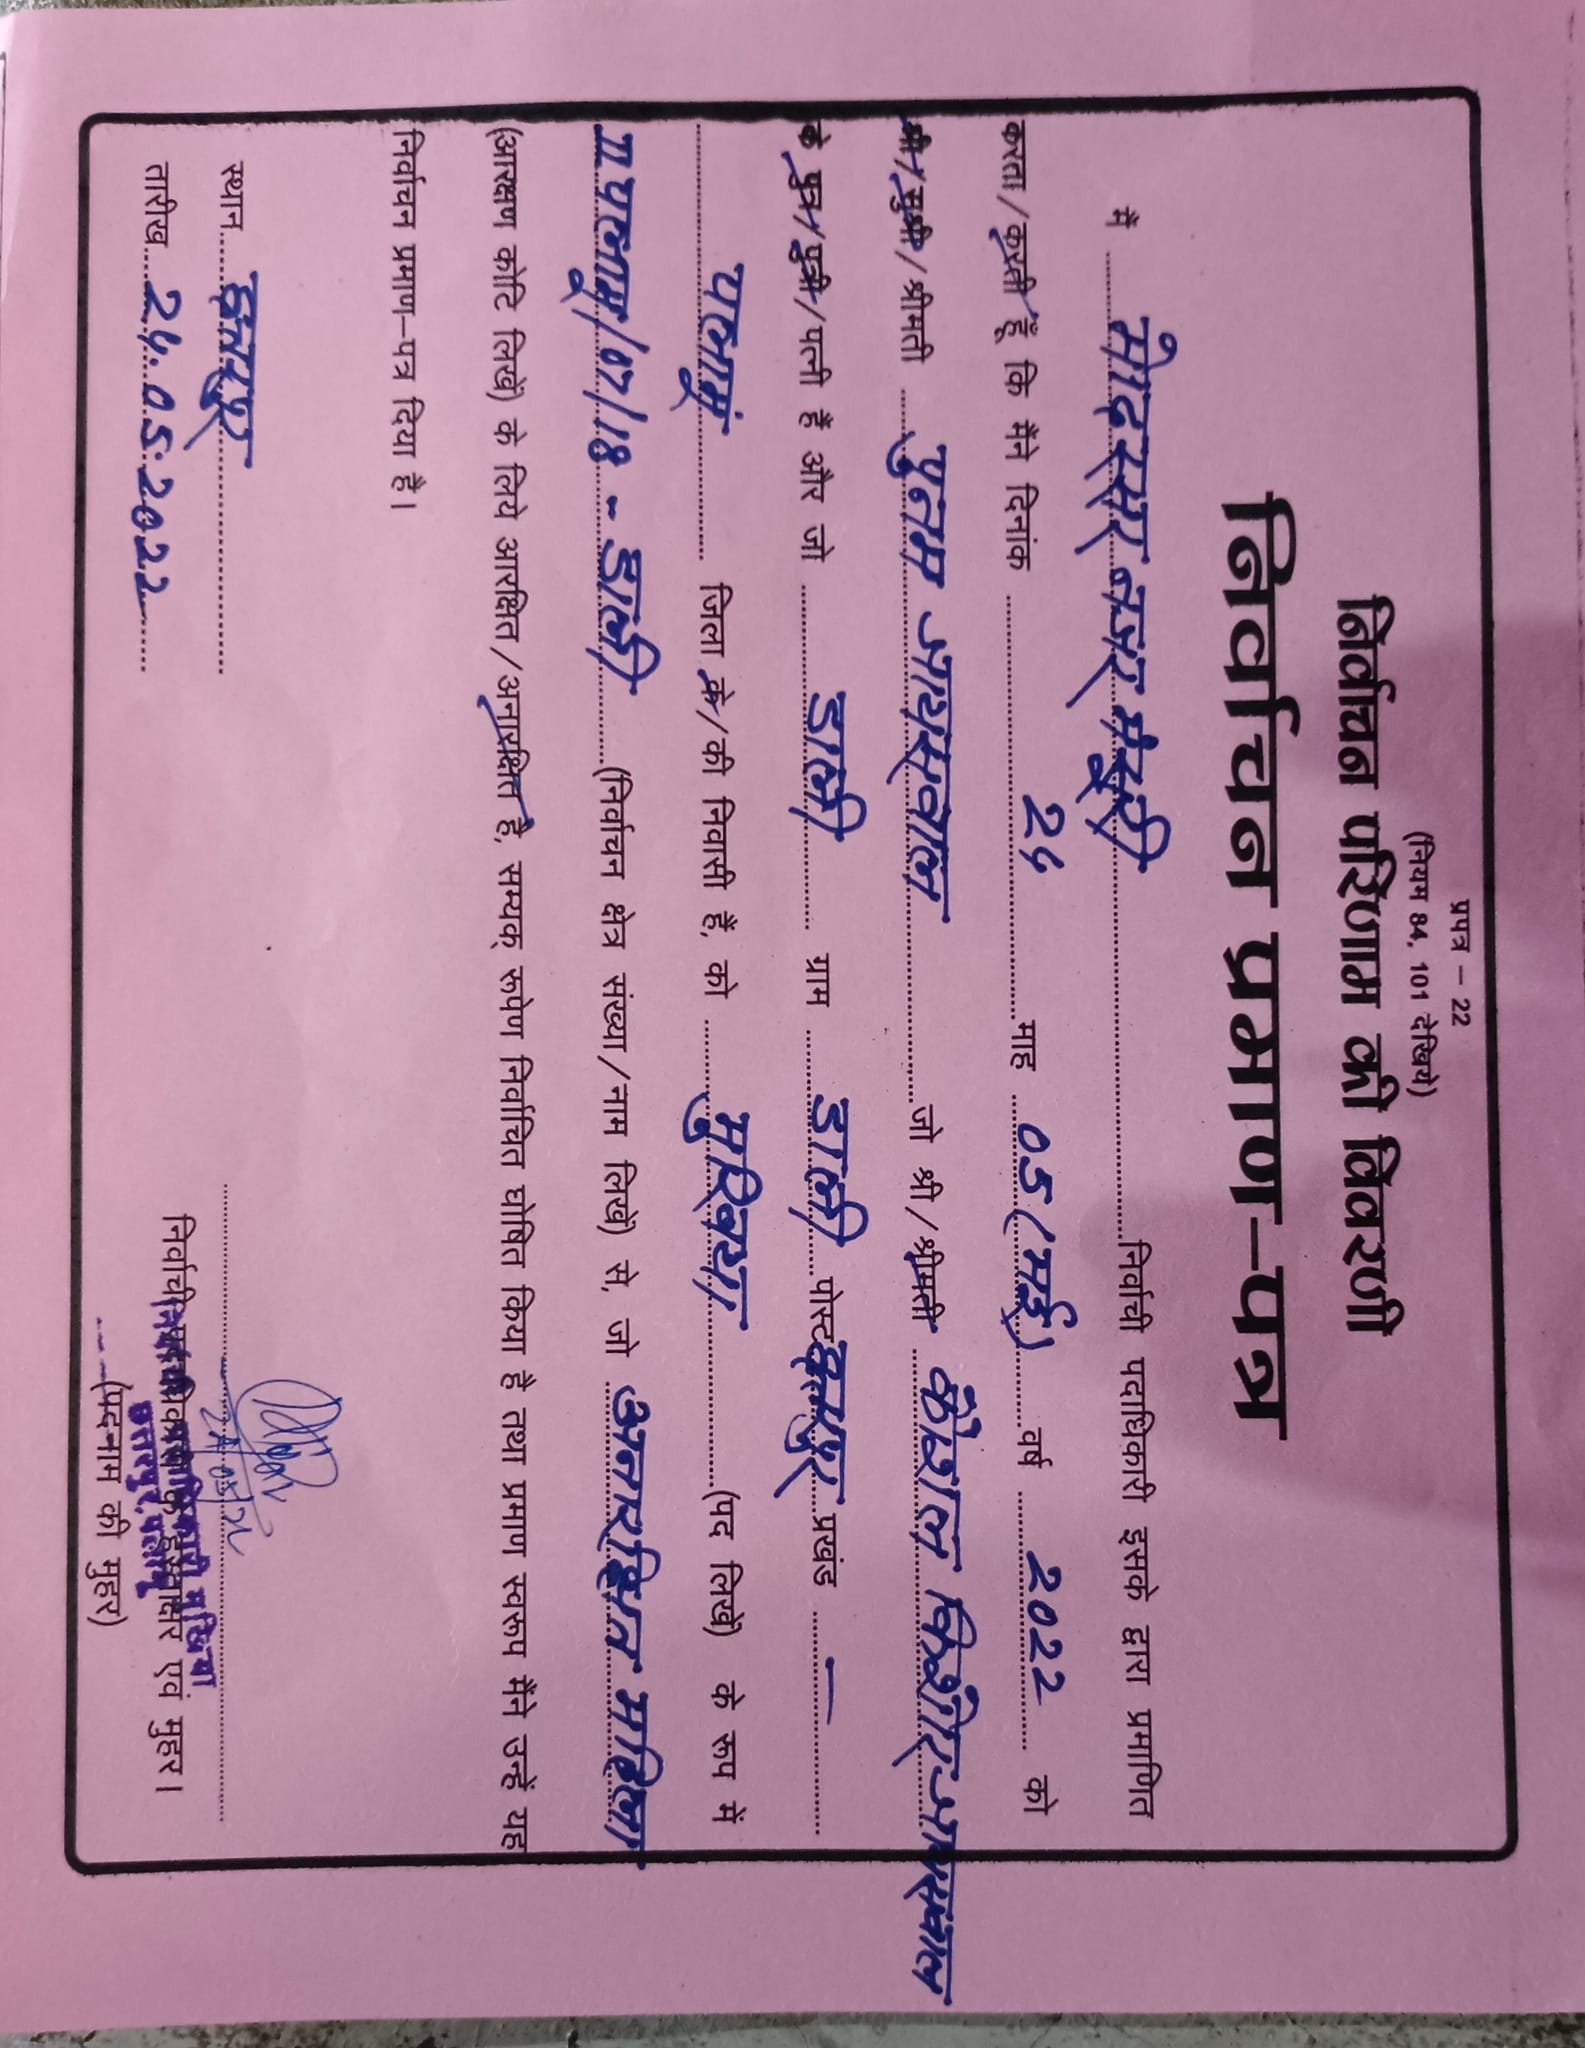 प्रपत्र – 22
(नियम 84, 101 देखिये)
निर्वाचन परिणाम की विवरणी
निर्वाचन प्रमाण–पत्र
मैं निर्वाची पदाधिकारी इसके द्वारा प्रमाणित
करता/करती हूँ कि मैंने दिनांक 24 माह 05 (मई) वर्ष 2022 को
श्री/सुश्री/श्रीमती पुनम जायसवाल जो श्री/श्रीमती कौशल किशोर जायसवाल
के पुत्र/पुत्री/पत्नी हैं और जो डाली ग्राम डाली पोस्ट छतरपुर प्रखंड —
पलामू जिला के/की निवासी हैं, को मुखिया (पद लिखें) के रूप में
III पलामू/07/18 - डाली (निर्वाचन क्षेत्र संख्या/नाम लिखें) से, जो अनारक्षित महिला
(आरक्षण कोटि लिखें) के लिये आरक्षित/अनारक्षित है, सम्यक् रूपेण निर्वाचित घोषित किया है तथा प्रमाण स्वरूप मैंने उन्हें यह
निर्वाचन प्रमाण–पत्र दिया है।
स्थान छतरपुर
तारीख 24.05.2022
निर्वाची पदाधिकारी के हस्ताक्षर एवं मुहर।
मुखिया
छतरपुर, पलामू
(पदनाम की मुहर)